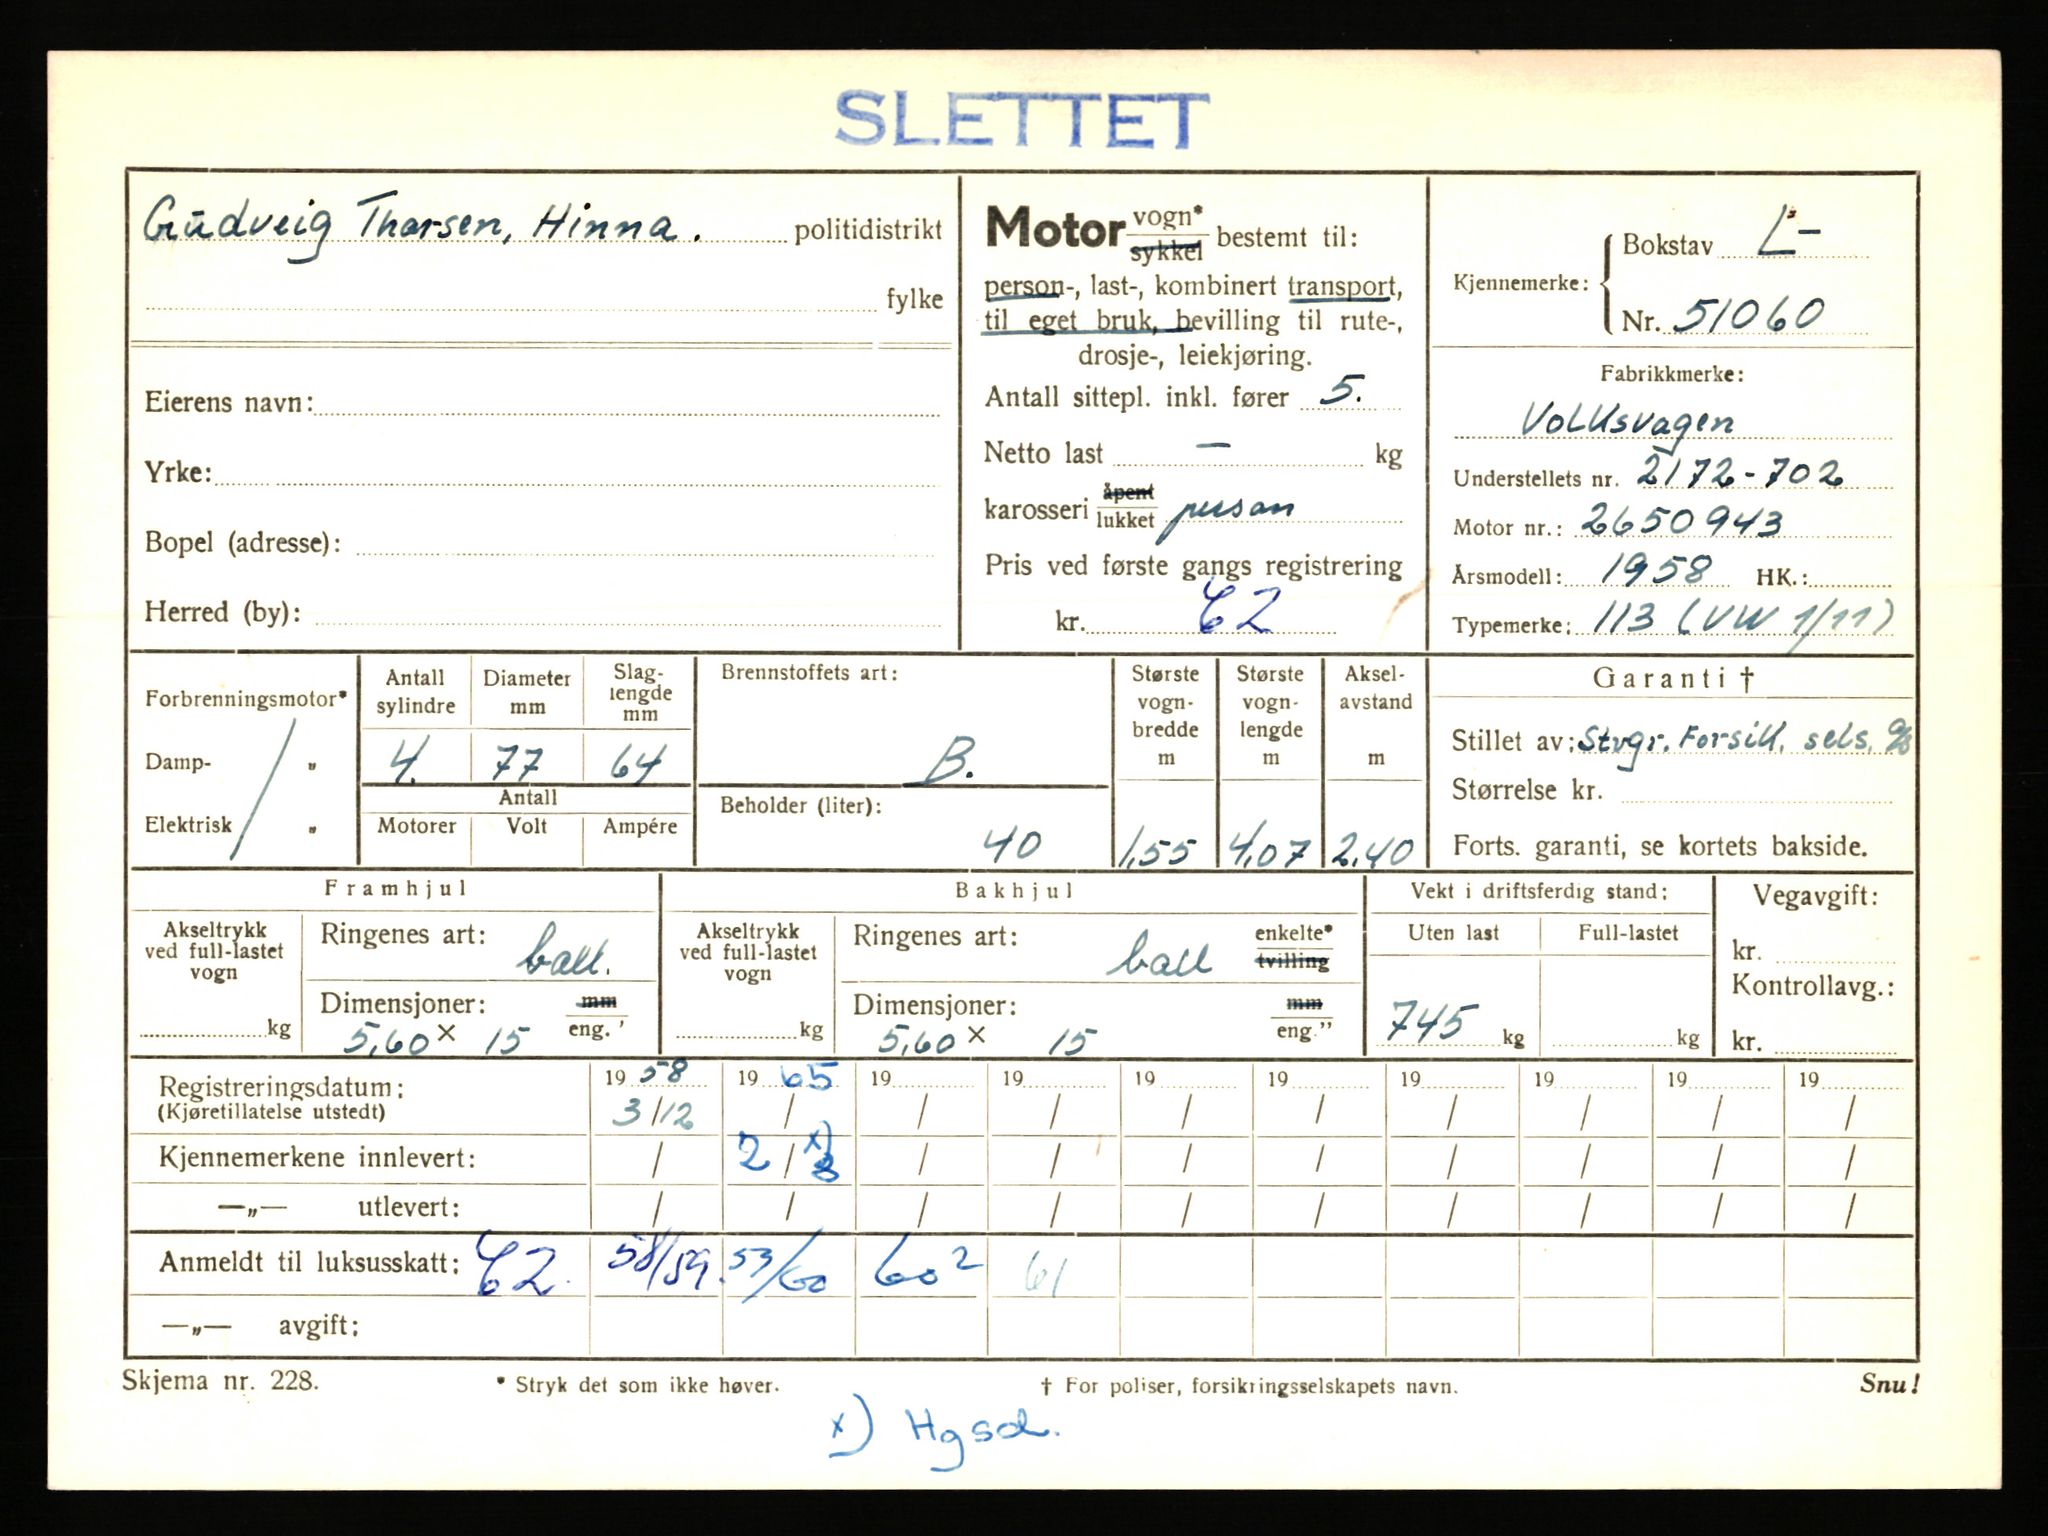 SLETTET
Gudveig Thorsen, Hinna. politidistrikt
fylke
Eierens navn:
Yrke:
Bopel (adresse):
Herred (by):
Motor vogn* sykkel bestemt til:
person-, last-, kombinert transport,
til eget bruk, bevilling til rute-,
drosje-, leiekjøring.
Antall sittepl. inkl. fører 5.
Netto last — kg
karosseri åpent lukket person
Pris ved første gangs registrering
kr.
Kjennemerke: Bokstav L-
Nr. 51060
Fabrikkmerke:
Volksvagen
Understellets nr. 2172-702
Motor nr.: 2650943
Årsmodell: 1958 HK.:
Typemerke: 113 (VW 1/11)
Forbrenningsmotor*
Damp- "
Elektrisk "
Antall sylindre
Diameter mm
Slag-lengde mm
4. 77 64
Antall
Motorer Volt Ampére
Brennstoffets art:
B.
Beholder (liter):
40
Største vogn-bredde m
1,55
Største vogn-lengde m
4,07
Aksel-avstand m
2,40
Garanti †
Stillet av: Stvgr. Forsik. sels.
Størrelse kr.
Forts. garanti, se kortets bakside.
Framhjul
Akseltrykk
ved full-lastet
vogn
kg
Ringenes art: ball.
Dimensjoner: mm eng. '
5,60 x 15
Bakhjul
Akseltrykk
ved full-lastet
vogn
kg
Ringenes art: ball enkelte* tvilling
Dimensjoner: mm eng."
5,60 x 15
Vekt i driftsferdig stand:
Uten last Full-lastet
745 kg kg
Vegavgift:
kr.
Kontrollavg.:
kr.
Registreringsdatum: 19 58 19 65 19 19 19 19 19 19 19 19
(Kjøretillatelse utstedt) 3/12 / / / / / / / / /
Kjennemerkene innlevert: / 2 / 8 x) / / / / / / / /
—„— utlevert: / / / / / / / / / /
Anmeldt til luksusskatt: 58/59. 60 2 61
—„— avgift:
Skjema nr. 228. * Stryk det som ikke høver. † For poliser, forsikringsselskapets navn. Snu!
x) Hgsd.